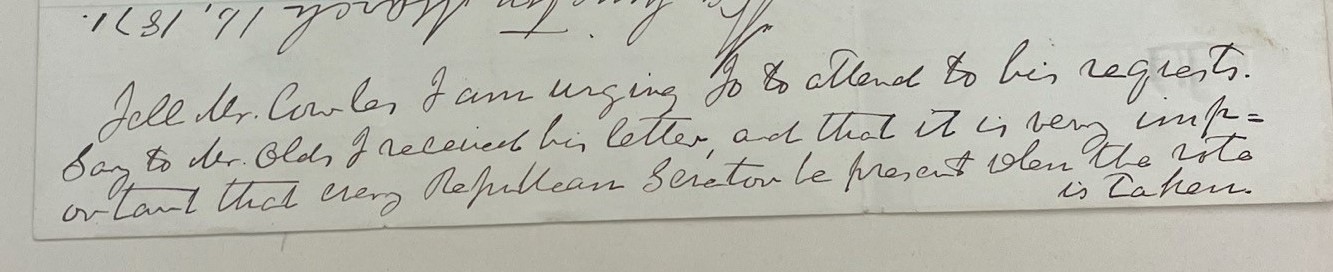 Washington March 16, 1871.
Tell Mr. Cowles I am urging Jo to attend to his requests.
Say to Mr. Olds I received his letter, and that it is very imp=
ortant that every Republican Senator be present when the vote
is taken.